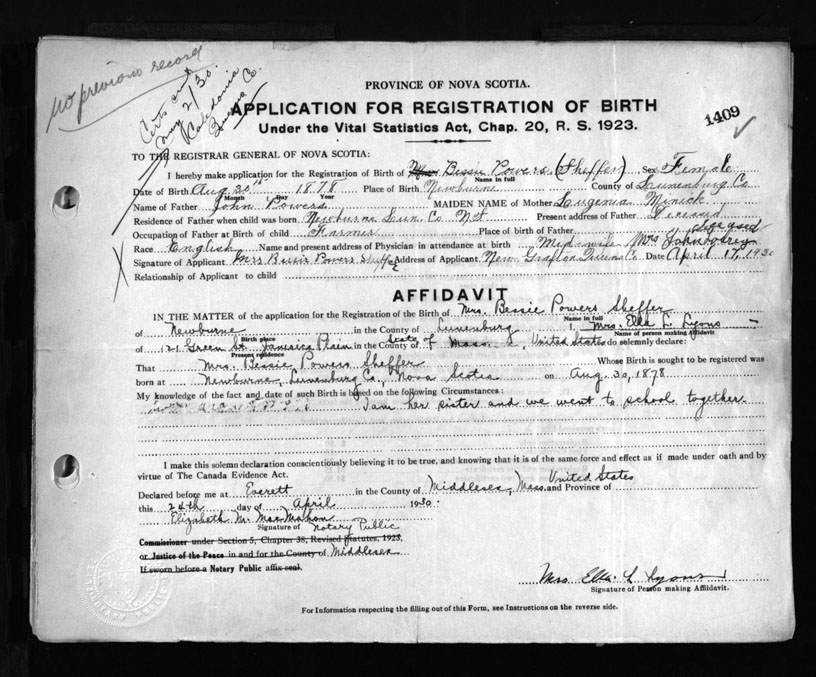 no previous record
Certs
May 2/30.
Caledonia
Queens Co.
PROVINCE OF NOVA SCOTIA.
APPLICATION FOR REGISTRATION OF BIRTH
1409
Under the Vital Statistics Act, Chap. 20, R. S. 1923.
TO THE REGISTRAR GENERAL OF NOVA SCOTIA:
I hereby make application for the Registration of Birth of Bessie Powers (Sheffer) Sex Female
Name in full
Date of Birth Aug 30th 1878 Place of Birth Newburne County of Lunenburg Co
Month Day Year
Name of Father John Powers MAIDEN NAME of Mother Eugenia Minick
Residence of Father when child was born Newburne Lun. Co. N.S. Present address of Father Deceased
Occupation of Father at Birth of child Farmer Place of birth of Father
Race English Name and present address of Physician in attendance at birth Midwife Mrs John deceased
Signature of Applicant Mrs Bessie Powers Sheffer Address of Applicant New Grafton Queens Co. Date April 17, 1930
Relationship of Applicant to child
AFFIDAVIT
IN THE MATTER of the application for the Registration of the Birth of Mrs. Bessie Powers Sheffer
Name in full
of Newburne in the County of Lunenburg I, Mrs. Ella L. Lyons
Birth place Name of person making Affidavit
of 121 Green St. Jamaica Plain State of Mass. United States do solemnly declare:
Present residence
That Mrs. Bessie Powers Sheffer Whose Birth is sought to be registered was
born at Newburne, Lunenburg Co., Nova Scotia on Aug. 30, 1878
My knowledge of the fact and date of such Birth is based on the following Circumstances:
I am her sister and we went to school together.
I make this solemn declaration conscientiously believing it to be true, and knowing that it is of the same force and effect as if made under oath and by
virtue of The Canada Evidence Act.
Declared before me at Everett in the County of Middlesex, Mass. and Province of United States
this 24th day of April 1930.
Elizabeth M. MacMahon
Signature of Notary Public
Commissioner under Section 5, Chapter 38, Revised Statutes, 1923,
or Justice of the Peace in and for the County of Middlesex
If sworn before a Notary Public affix seal.
Mrs Ella L Lyons
Signature of Person making Affidavit.
For Information respecting the filling out of this Form, see Instructions on the reverse side.